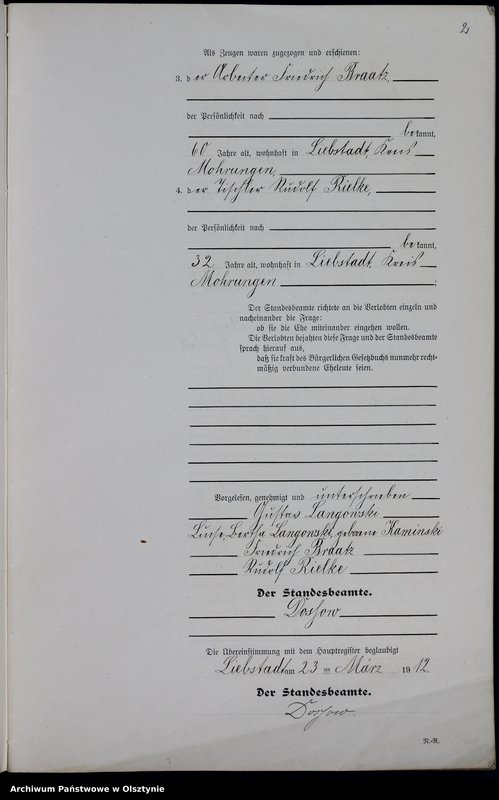 2
Als Zeugen waren zugezogen und erschienen:
3. der Arbeiter Friedrich Braatz,
der Persönlichkeit nach
bekannt,
60 Jahre alt, wohnhaft in Liebstadt, Kreis
Mohrungen,
4. der Tischler Rudolf Rielke,
der Persönlichkeit nach
bekannt,
32 Jahre alt, wohnhaft in Liebstadt, Kreis
Mohrungen;
Der Standesbeamte richtete an die Verlobten einzeln und
nacheinander die Frage:
ob sie die Ehe miteinander eingehen wollen.
Die Verlobten bejahten diese Frage und der Standesbeamte
sprach hierauf aus,
daß sie kraft des Bürgerlichen Gesetzbuchs nunmehr recht-
mäßig verbundene Eheleute seien.
Vorgelesen, genehmigt und unterschrieben
Gustav Langowski
Luise Bertha Langowski, geborene Kaminski
Friedrich Braatz
Rudolf Rielke
Der Standesbeamte.
Dossow
Die Übereinstimmung mit dem Hauptregister beglaubigt
Liebstadt am 23 ten März 1912.
Der Standesbeamte.
Dossow.
R.-R.
Archiwum Państwowe w Olsztynie